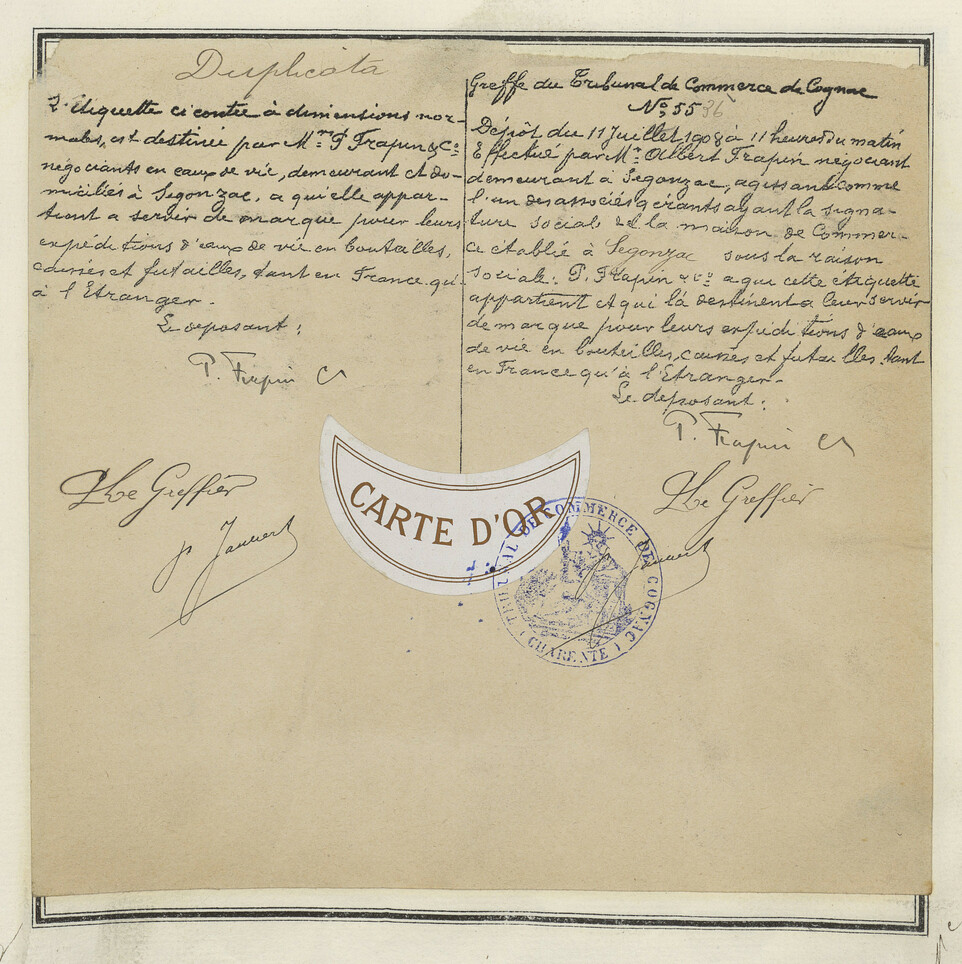 Duplicata
L'étiquette ci contre à dimensions nor-
males, est destinée par Mrs P Frapin & Co
négociants en eaux de vie, demeurant et do-
miciliés à Segonzac, a qu'elle appar-
tient a servir de marque pour leurs
expéditions d'eaux de vie en boutailles,
caisses et futailles, tant en France qu'
à l'Etranger.
Le deposant :
P. Frapin Co
Le Greffier
p Jauuert
Greffe du Tribunal de Commerce de Cognac
No 5536
Dépôt du 11 Juillet 1908 à 11 heures du matin
Effectué par Mr Albert Frapin négociant
demeurant à Segonzac, agissant comme
l'un des associés gérants ayant la signa-
ture social de la maison de Commer-
ce établie à Segonzac sous la raison
sociale : P. Frapin & Co a qui cette étiquette
appartient et qui la destinent a leur servir
de marque pour leurs expéditions d'eaux
de vie en bouteilles, caisses et futailles tant
en France qu'à l'Etranger.
Le deposant :
P. Frapin Co
Le Greffier
CARTE D'OR
TRIBUNAL DE COMMERCE DE COGNAC
(CHARENTE)